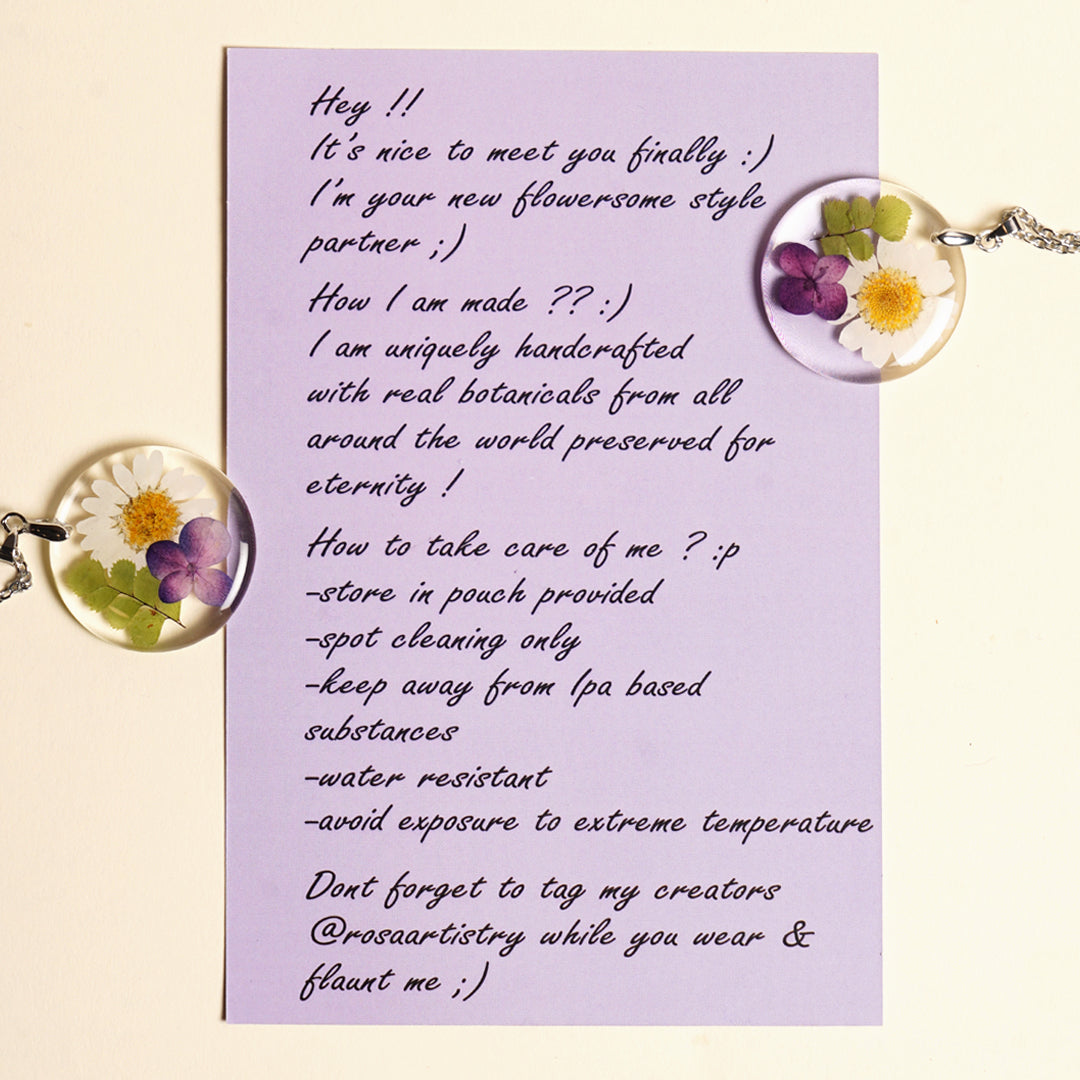 Hey !!
It's nice to meet you finally :)
I'm your new flowersome style
partner ;)
How I am made ?? :)
I am uniquely handcrafted
with real botanicals from all
around the world preserved for
eternity !
How to take care of me ? :p
-store in pouch provided
-spot cleaning only
-keep away from Ipa based
substances
-water resistant
-avoid exposure to extreme temperature
Dont forget to tag my creators
@rosaartistry while you wear &
flaunt me ;)